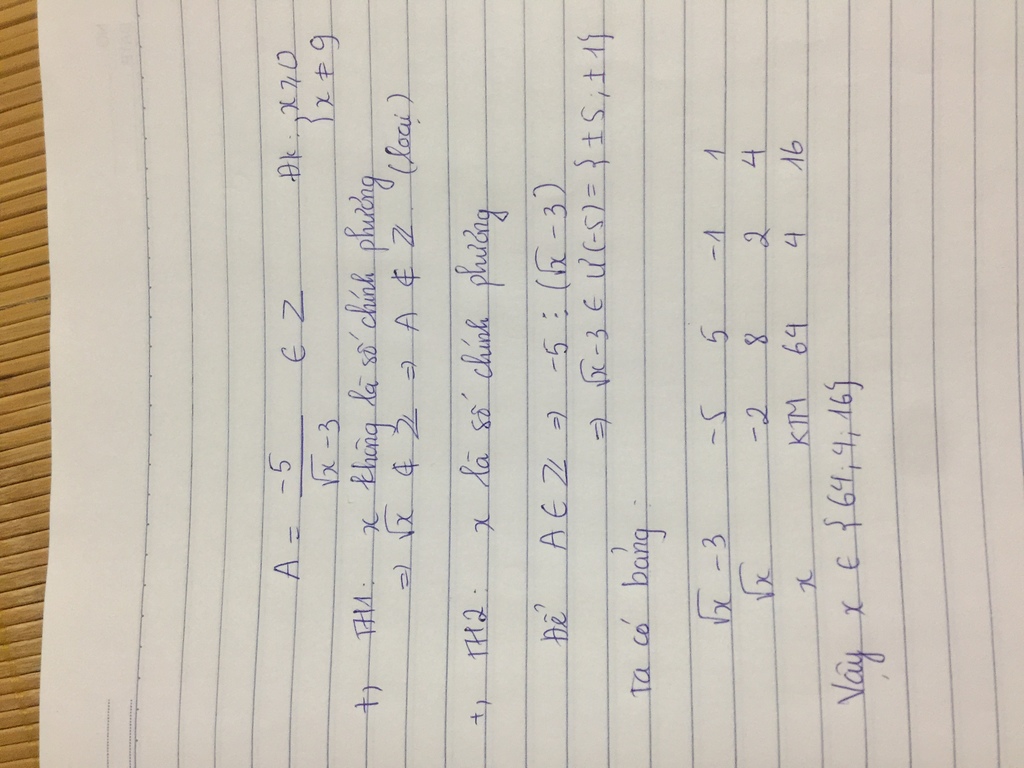 A = -5 / (√x - 3) ∈ Z ĐK: { x ⩾ 0 { x ≠ 9
+, TH1: x không là số chính phương
=> √x ∉ Z => A ∉ Z (loại)
+, TH2: x là số chính phương
Để A ∈ Z => -5 ⋮ (√x - 3)
=> √x - 3 ∈ Ư(-5) = { ±5; ±1}
Ta có bảng.
√x - 3 -5 5 -1 1
√x -2 8 2 4
x KTM 64 4 16
Vậy x ∈ {64, 4, 16}